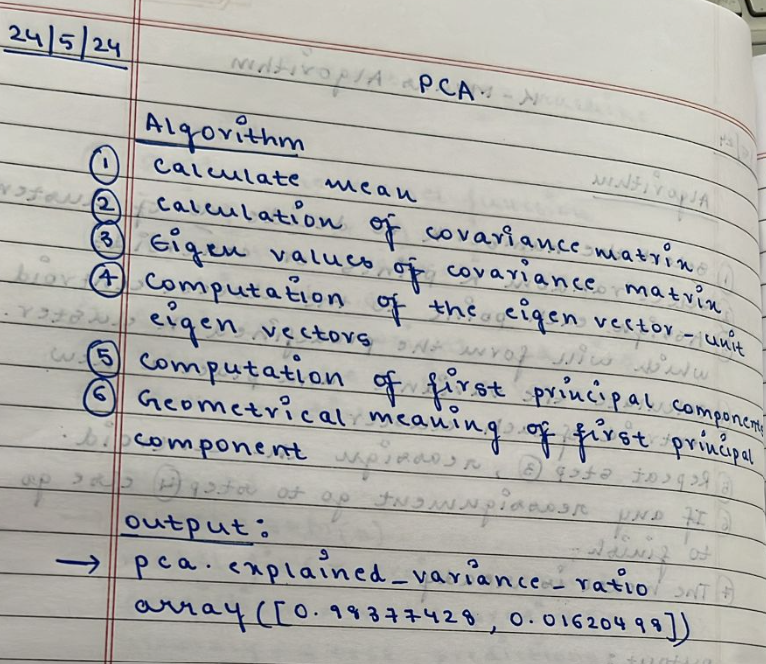 24/5/24
PCA
Algorithm
① calculate mean
② calculation of covariance matrix
③ Eigen values of covariance matrix
④ computation of the eigen vector - unit
eigen vectors
⑤ computation of first principal components
⑥ Geometrical meaning of first principal
component
output:
→ pca.explained_variance_ratio
array([0.98377428, 0.01620498])